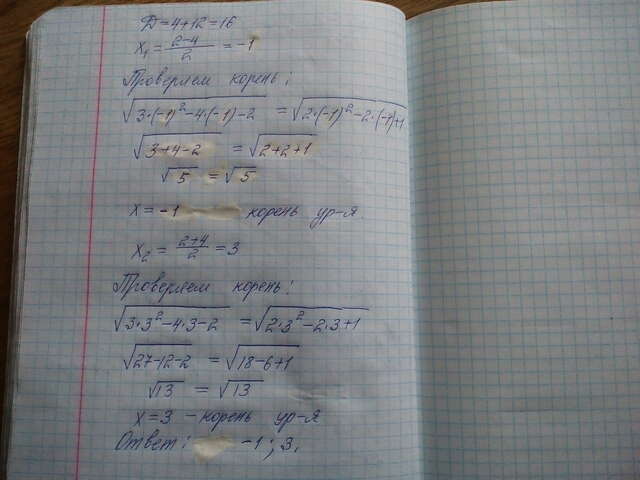 D = 4 + 12 = 16
x₁ = (2-4)/2 = -1
Проверяем корень:
√(3·(-1)²-4·(-1)-2) = √(2·(-1)²-2·(-1)+1
√(3+4-2) = √(2+2+1)
√5 = √5
x = -1 корень ур-я.
x₂ = (2+4)/2 = 3
Проверяем корень:
√(3·3²-4·3-2) = √(2·3²-2·3+1)
√(27-12-2) = √(18-6+1)
√13 = √13
x = 3 - корень ур-я
Ответ: -1; 3.